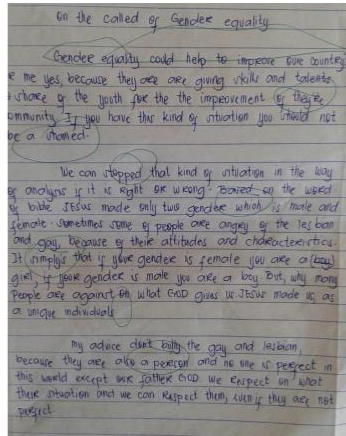 on the called of Gender equality
Gender equality could help to improve our country
me yes, because they are are giving skills and talents
share of the youth for the the improvement of they're
ommunity. If you have this kind of situation you should not
be a shamed.
We can stopped that kind of situation in the way
of analyns if it is right or wrong. Based on the word
of bible JESUS made only two gender which is male and
female. Sometimes some of people are angry of the lesbian
and gay, because of their attitudes and characteristics.
It simply's that if your gender is female you are a (boy)
girl, if your gender is male you are a boy. But, why many
people are against on what GOD gives us JESUS made us as
a unique individuals
my advice don't bully the gay and lesbian,
because they are also a person and no one is perfect in
this world except our father GOD we Respect on what
their situation and we can Respect them, even if they are not
perfect